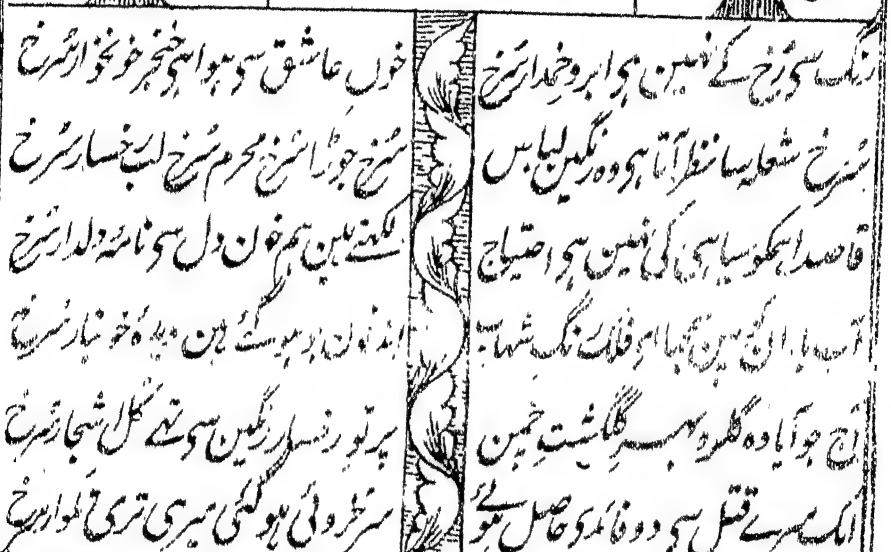 رنگ سی رُخ کے نہین ہی ابرو خمدار سُرخ
خونِ عاشق سی ہوا ہی خنجرِ خونخوار سُرخ
سُرخ شعلہ سا نظر آتا ہی وہ رنگین لباس
سُرخ جوڑا سُرخ محرم سُرخ لب رخسار سُرخ
قاصدا ہمکو سیاہی کی نہین ہی احتیاج
لکھتے ہین ہم خون دل سی نامۂ دلدار سُرخ
فلک رنگِ شہاب
ہو گئے ہین دیدۂ خونبار سُرخ
آج جو آیا وہ گلرو بہر گلگشتِ چمن
پرتو رخسار رنگین سی تھے گل اشجار سُرخ
ایک میرے قتل سی دو فائدی حاصل ہوئے
سرخروئی ہو گئی میری تری تلوار سرخ